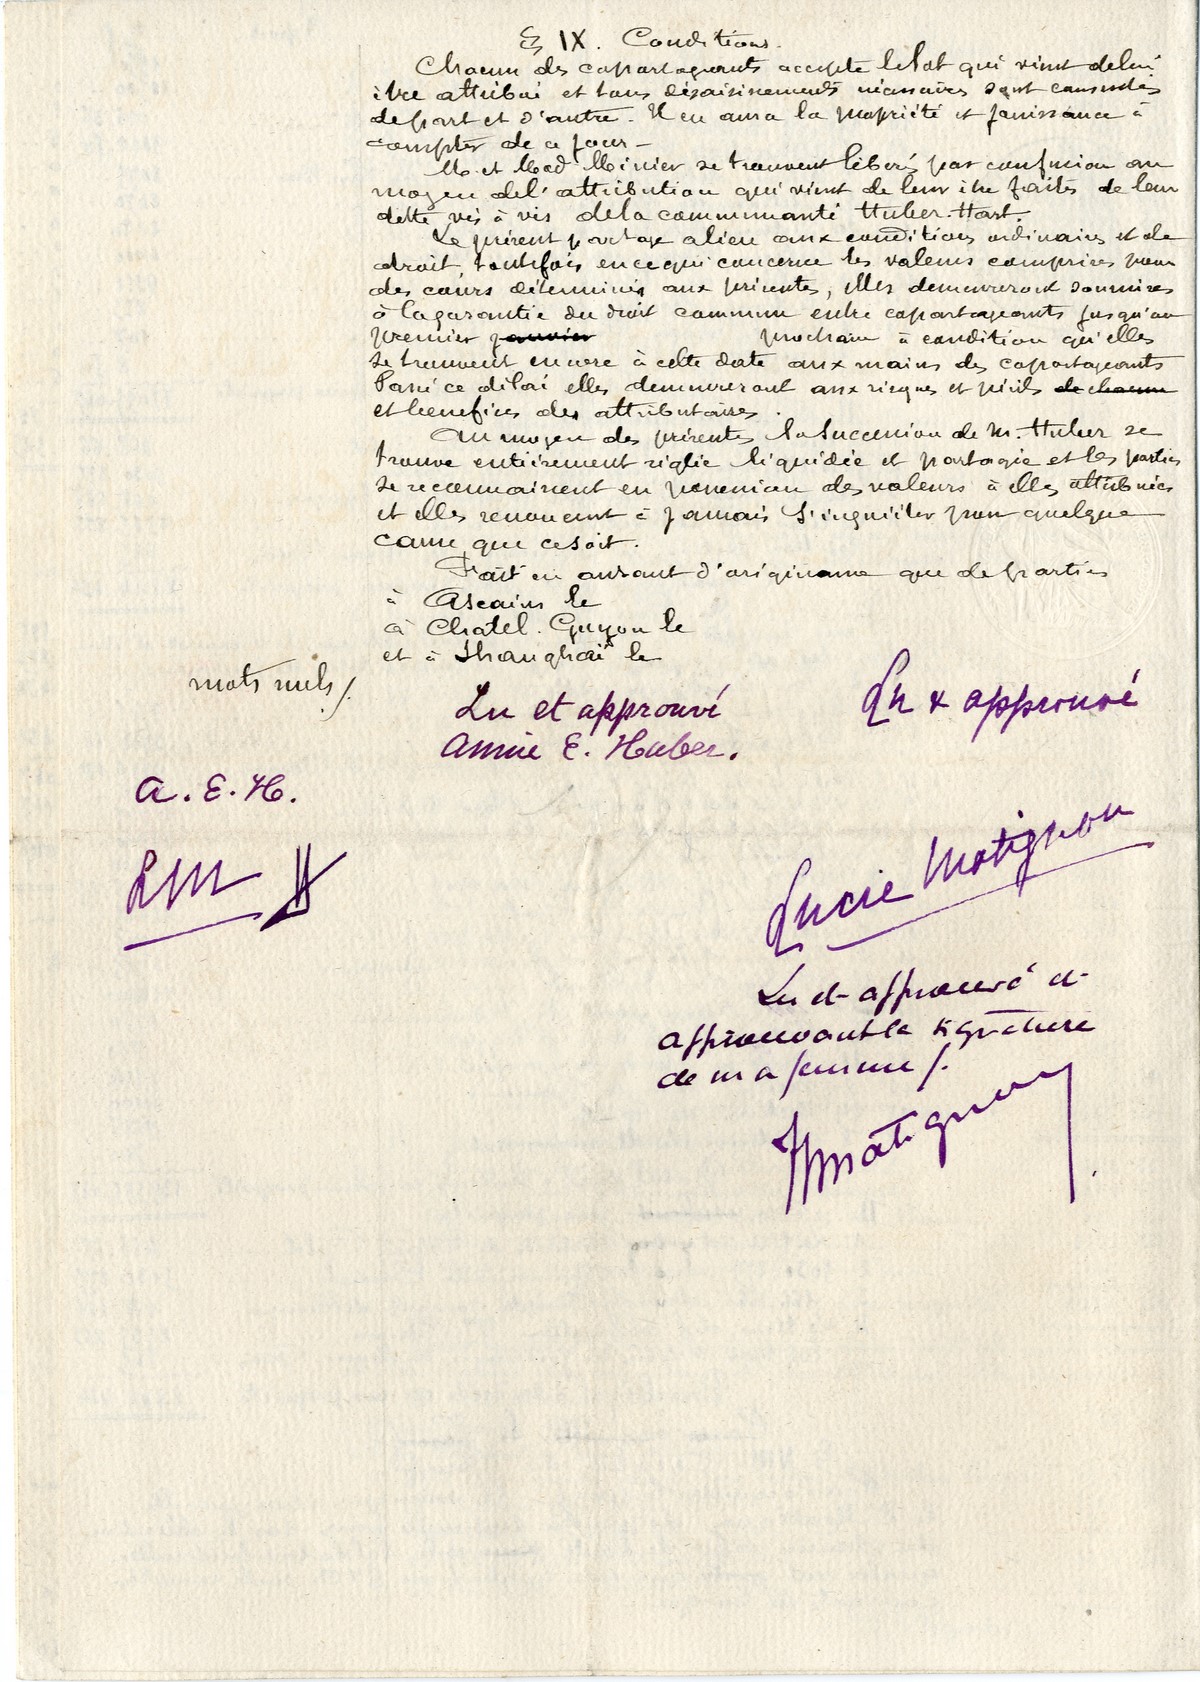 § IX. Conditions.
Chacun des copartageants accepte le lot qui vient de lui
être attribué et tous désaisissements nécessaires sont consentis
de part et d'autre. Il en aura la propriété et jouissance à
compter de ce jour –
M. et Mad Minier se trouvent libérés par confusion au
moyen de l'attribution qui vient de leur être faites de leur
dette vis à vis de la communauté Huber-Hart.
Le présent partage a lieu aux conditions ordinaires et de
droit, toutefois en ce qui concerne les valeurs comprises pour
des cours déterminés aux présentes, elles demeureront soumises
à la garantie du droit commun entre copartageants jusqu'au
premier janvier prochain à condition qu'elles
se trouvent encore à cette date aux mains des copartageants
Passé ce délai elles demeureront aux risques et périls de chacun
et bénéfices des attributaires.
Au moyen des présentes la succession de M. Huber se
trouve entièrement réglée liquidée et partagée et les parties
se reconnaissent en possession des valeurs à elles attribuées
et elles renoncent à jamais s'inquiéter pour quelque
cause que ce soit.
Fait en autant d'originaux que de parties
à Ascain le
à Chatel. Guyon le
et à Shanghaï le
mots nuls /.
Lu et approuvé
Annie E. Huber.
Lu & approuvé
A. E. H.
LM
Lucie Matignon
Lu et approuvé et
approuvant la signature
de ma femme /.
Matignon